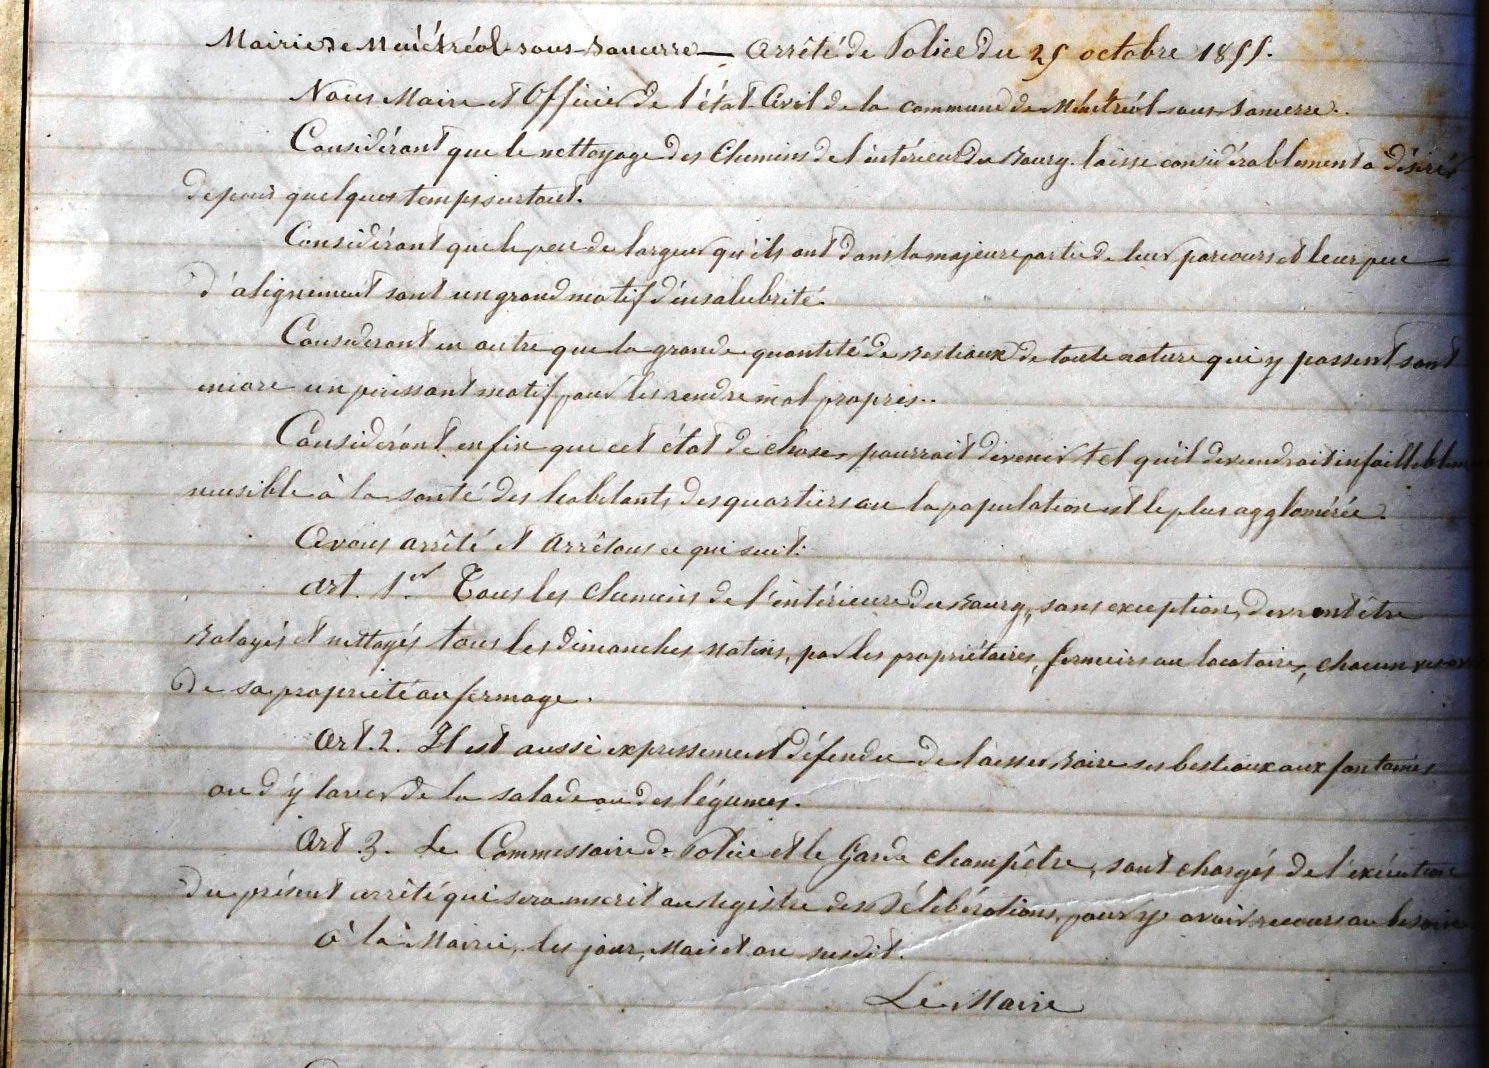 Mairie de Ménétréol-sous-Sancerre — Arrêté de Police du 25 octobre 1855.
Nous Maire et Officier de l'état Civil de la commune de Ménétréol-sous-Sancerre.
Considérant que le nettoyage des Chemins de l'intérieur du Bourg laisse considérablement à désirer
depuis quelques temps surtout.
Considérant que le peu de largeur qu'ils ont dans la majeure partie de leur parcours et leur peu
d'alignement sont un grand motif d'insalubrité.
Considérant en outre que la grande quantité de Bestiaux de toute nature qui y passent, sont
encore un puissant motif pour les rendre mal propres.
Considérant enfin que cet état de choses pourrait devenir tel qu'il deviendrait infailliblement
nuisible à la santé des habitants des quartiers où la population est le plus agglomérée.
Avons arrêté et Arrêtons ce qui suit:
Art. 1er. Tous les Chemins de l'intérieure du Bourg, sans exception, devront être
Balayés et nettoyés tous les dimanches Matins, par les propriétaires, fermiers ou locataires, chacun
de sa propriété ou fermage.
Art. 2. Il est aussi expressément défendu de laisser Boire ses bestiaux aux fontaines
ou d'y laver de la salade ou des légumes.
Art. 3. Le Commissaire de Police et le Garde Champêtre, sont chargés de l'exécution
du présent arrêté qui sera inscrit au Registre des Délibérations, pour y avoir recours au besoin
à la Mairie, les jour, Mois et an susdit.
Le Maire